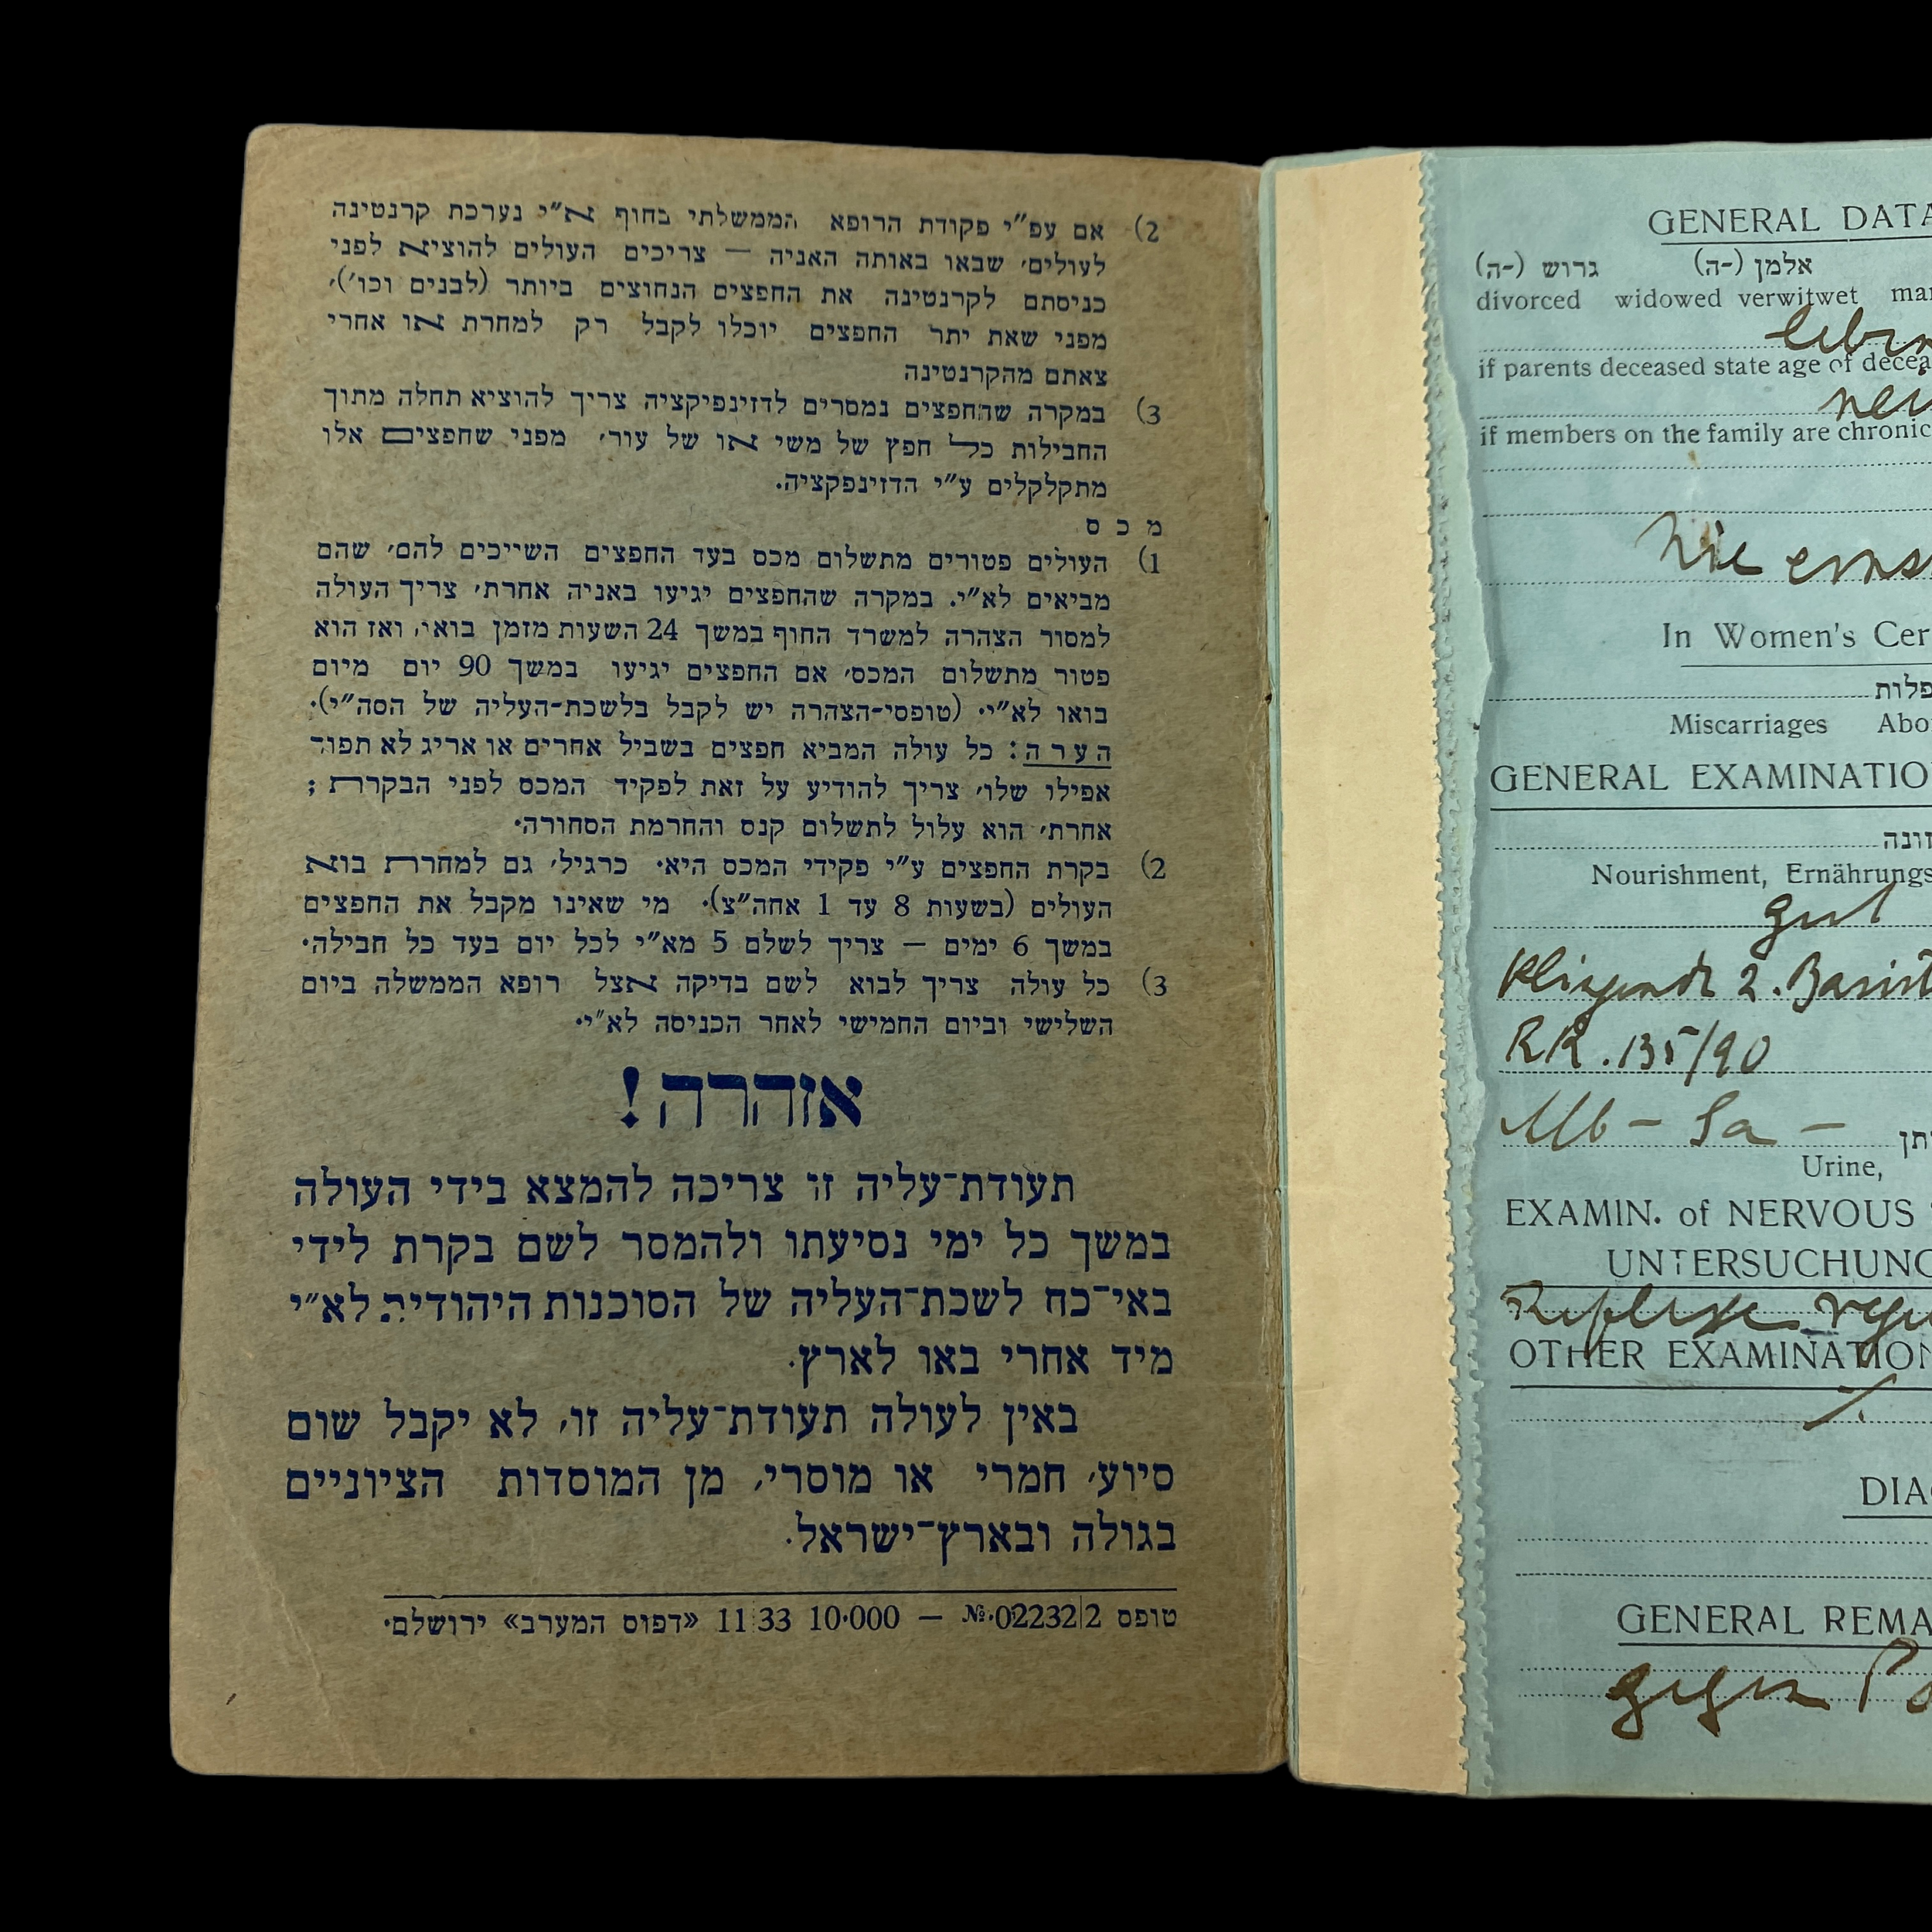 2) אם עפ"י פקודת הרופא הממשלתי בחוף א"י נערכת קרנטינה
לעולים, שבאו באותה האניה — צריכים העולים להוציא לפני
כניסתם לקרנטינה את החפצים הנחוצים ביותר (לבנים וכו'),
מפני שאת יתר החפצים יוכלו לקבל רק למחרת או אחרי
צאתם מהקרנטינה
3) במקרה שהחפצים נמסרים לדזינפיקציה צריך להוציא תחלה מתוך
החבילות כל חפץ של משי או של עור, מפני שחפצים אלו
מתקלקלים ע"י הדזינפקציה.
מ כ ס
1) העולים פטורים מתשלום מכס בעד החפצים השייכים להם, שהם
מביאים לא"י. במקרה שהחפצים יגיעו באניה אחרת, צריך העולה
למסור הצהרה למשרד החוף במשך 24 השעות מזמן בואו, ואז הוא
פטור מתשלום המכס, אם החפצים יגיעו במשך 90 יום מיום
בואו לא"י. (טופסי-הצהרה יש לקבל בלשכת-העליה של הסה"י).
ה ע ר ה: כל עולה המביא חפצים בשביל אחרים או אריג לא תפור
אפילו שלו, צריך להודיע על זאת לפקיד המכס לפני הבקרת;
אחרת, הוא עלול לתשלום קנס והחרמת הסחורה.
2) בקרת החפצים ע"י פקידי המכס היא, כרגיל, גם למחרת בוא
העולים (בשעות 8 עד 1 אחה"צ). מי שאינו מקבל את החפצים
במשך 6 ימים — צריך לשלם 5 מא"י לכל יום בעד כל חבילה.
3) כל עולה צריך לבוא לשם בדיקה אצל רופא הממשלה ביום
השלישי וביום החמישי לאחר הכניסה לא"י.
אזהרה!
תעודת־עליה זו צריכה להמצא בידי העולה
במשך כל ימי נסיעתו ולהמסר לשם בקרת לידי
באי־כח לשכת־העליה של הסוכנות היהודית לא"י
מיד אחרי באו לארץ.
באין לעולה תעודת־עליה זו, לא יקבל שום
סיוע, חמרי או מוסרי, מן המוסדות הציוניים
בגולה ובארץ־ישראל.
טופס №.02232/2 — 10.000 11.33 «דפוס המערב» ירושלם.
GENERAL DATA
אלמן (-ה) גרוש (-ה)
divorced widowed verwitwet
if parents deceased state age of
if members on the family are
Nie
In Women's
Miscarriages
GENERAL
Nourishment,
gut
2.
RR. 135/90
Alb – Sa –
Urine,
EXAMIN. of NERVOUS
Reflexe
OTHER
GENERAL
gegen